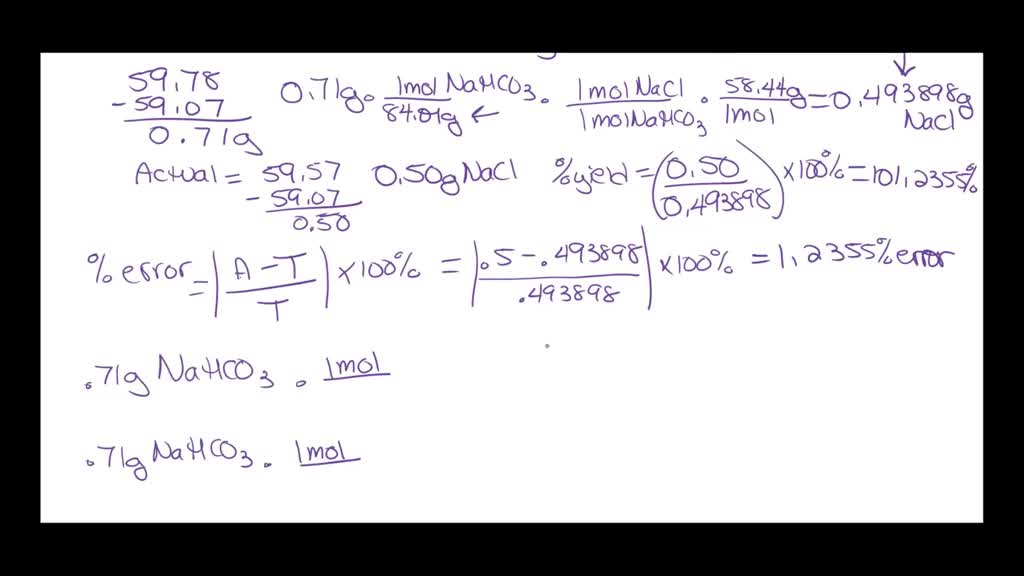 59.78
-59.07
0.71g
0.71g · 1mol NaHCO3 / 84.01g ← · 1mol NaCl / 1mol NaHCO3 · 58.44g / 1mol = 0.493898g NaCl
Actual = 59.57
-59.07
0.50
0.50g NaCl
% yield = (0.50 / 0.493898) ×100% = 101.2355%
% error = |A-T / T| ×100% = |.5-.493898 / .493898| ×100% = 1.2355% error
.71g NaHCO3 · 1mol
.71g NaHCO3 · 1mol